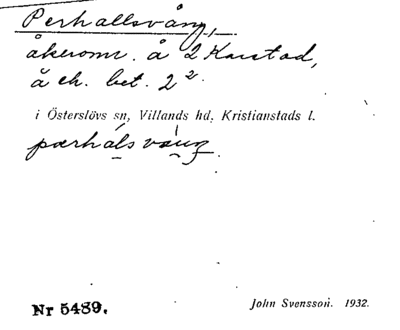 Perhallsvång,
åkeromr. å 2 Karstad,
å ek. bet. 2².
i Österslövs sn, Villands hd, Kristianstads l.
pærhálsvàng.
Nr 5489.
John Svensson. 1932.